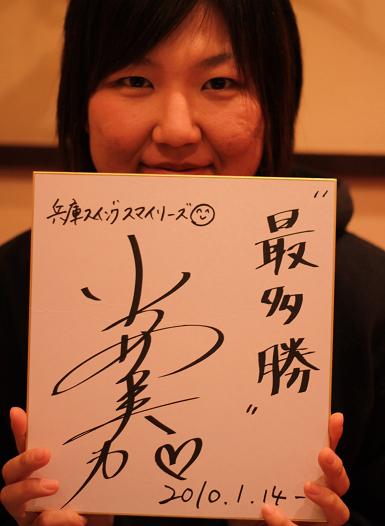 兵庫スイングスマイリーズ
"最多勝"
2010.1.14